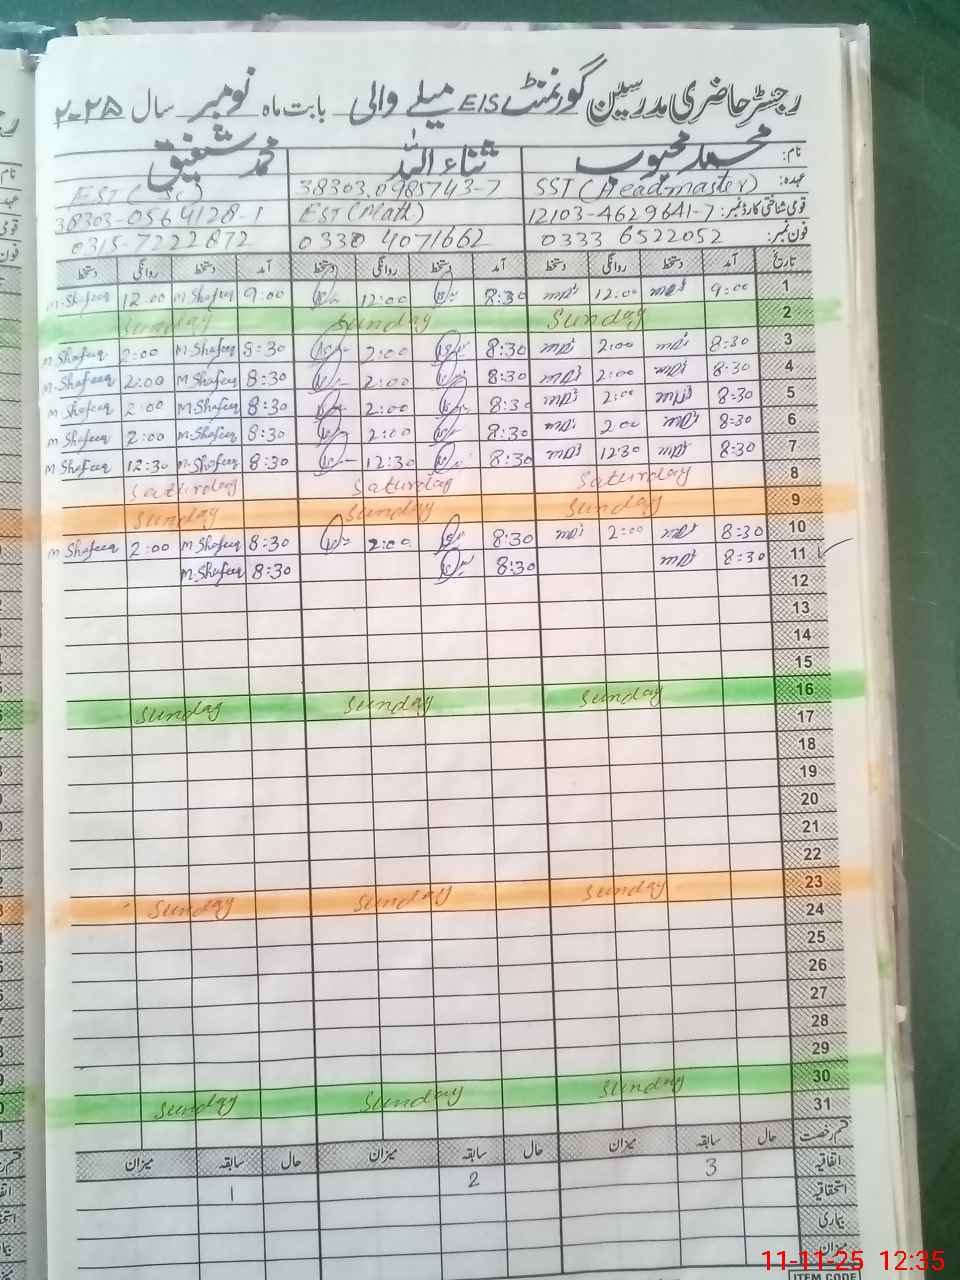 رجسٹر حاضری مدرسین گورنمنٹ EIS میلے والی بابت ماہ نومبر سال ۲۰۲۵
نام: محمد محبوب ثناء اللہ محمد شفیق
عہدہ: SST (Headmaster) 38303.0985743-7 EST (Sc)
قومی شناختی کارڈ نمبر: 12103-4629641-7 EST (Math) 38303-0564128-1
فون نمبر: 0333 6522052 0330 4071662 0315-7222872
تاریخ آمد دستخط روانگی دستخط آمد دستخط روانگی دستخط آمد دستخط روانگی دستخط
1 9:00 12:00 8:30 12:00 9:00 M.Shafeeq 12:00 M.Shafeeq
2 Sunday Sunday Sunday
3 8:30 2:00 8:30 2:00 8:30 M.Shafeeq 2:00 M.Shafeeq
4 8:30 2:00 8:30 2:00 8:30 M.Shafeeq 2:00 M.Shafeeq
5 8:30 2:00 8:30 2:00 8:30 M.Shafeeq 2:00 M.Shafeeq
6 8:30 2:00 8:30 2:00 8:30 M.Shafeeq 2:00 M.Shafeeq
7 8:30 12:30 8:30 12:30 8:30 M.Shafeeq 12:30 M.Shafeeq
8 Saturday Saturday Saturday
9 Sunday Sunday Sunday
10 8:30 2:00 8:30 2:00 8:30 M.Shafeeq 2:00 M Shafeeq
11 8:30 8:30 8:30 M.Shafeeq
12
13
14
15
16 Sunday Sunday Sunday
17
18
19
20
21
22
23 Sunday Sunday Sunday
24
25
26
27
28
29
30 Sunday Sunday Sunday
31
قسم رخصت حال سابقہ میزان حال سابقہ میزان حال سابقہ میزان
اتفاقیہ 3 2 1
استحقاقیہ
بیماری
میزان
11-11-25 12:35
ITEM CODE